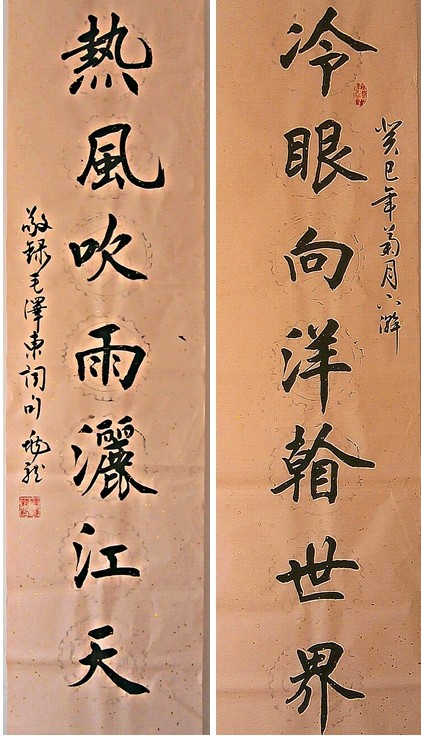 癸巳年菊月下澣
冷眼向洋看世界
熱風吹雨灑江天
敬録毛澤東詞句